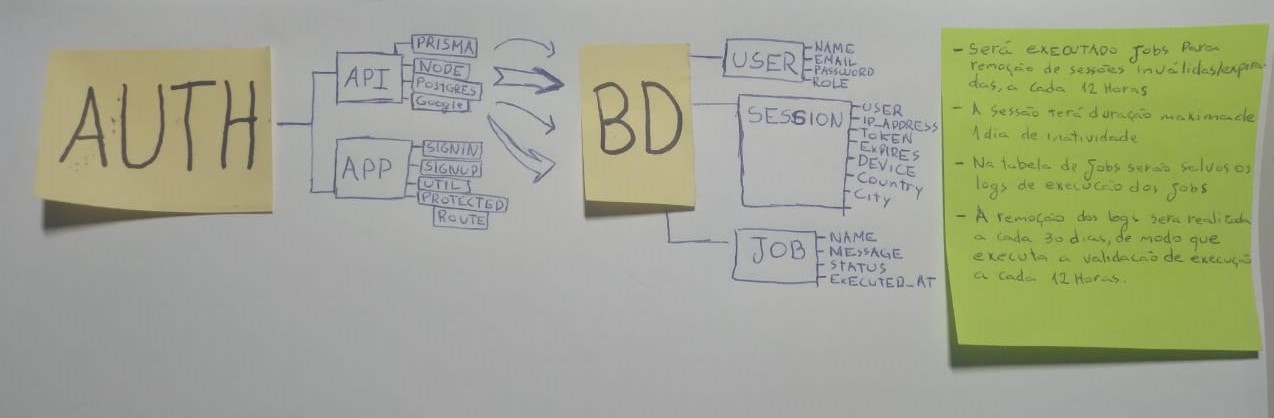 AUTH
API
PRISMA
NODE
POSTGRES
Google
APP
SIGNIN
SIGNUP
UTIL
PROTECTED
ROUTE
BD
USER
NAME
EMAIL
PASSWORD
ROLE
SESSION
USER
IP_ADDRESS
TOKEN
EXPIRES
DEVICE
COUNTRY
CITY
JOB
NAME
MESSAGE
STATUS
EXECUTED_AT
- Será EXECUTADO Jobs Para
remoção de sessões inválidas/expira-
das, a cada 12 Horas
- A sessão terá duração maxima de
1 dia de inatividade
- Na tabela de Jobs serão salvos os
logs de execução dos jobs
- A remoção dos logs sera realizada
a cada 30 dias, de modo que
executa a validação de execução
a cada 12 Horas.